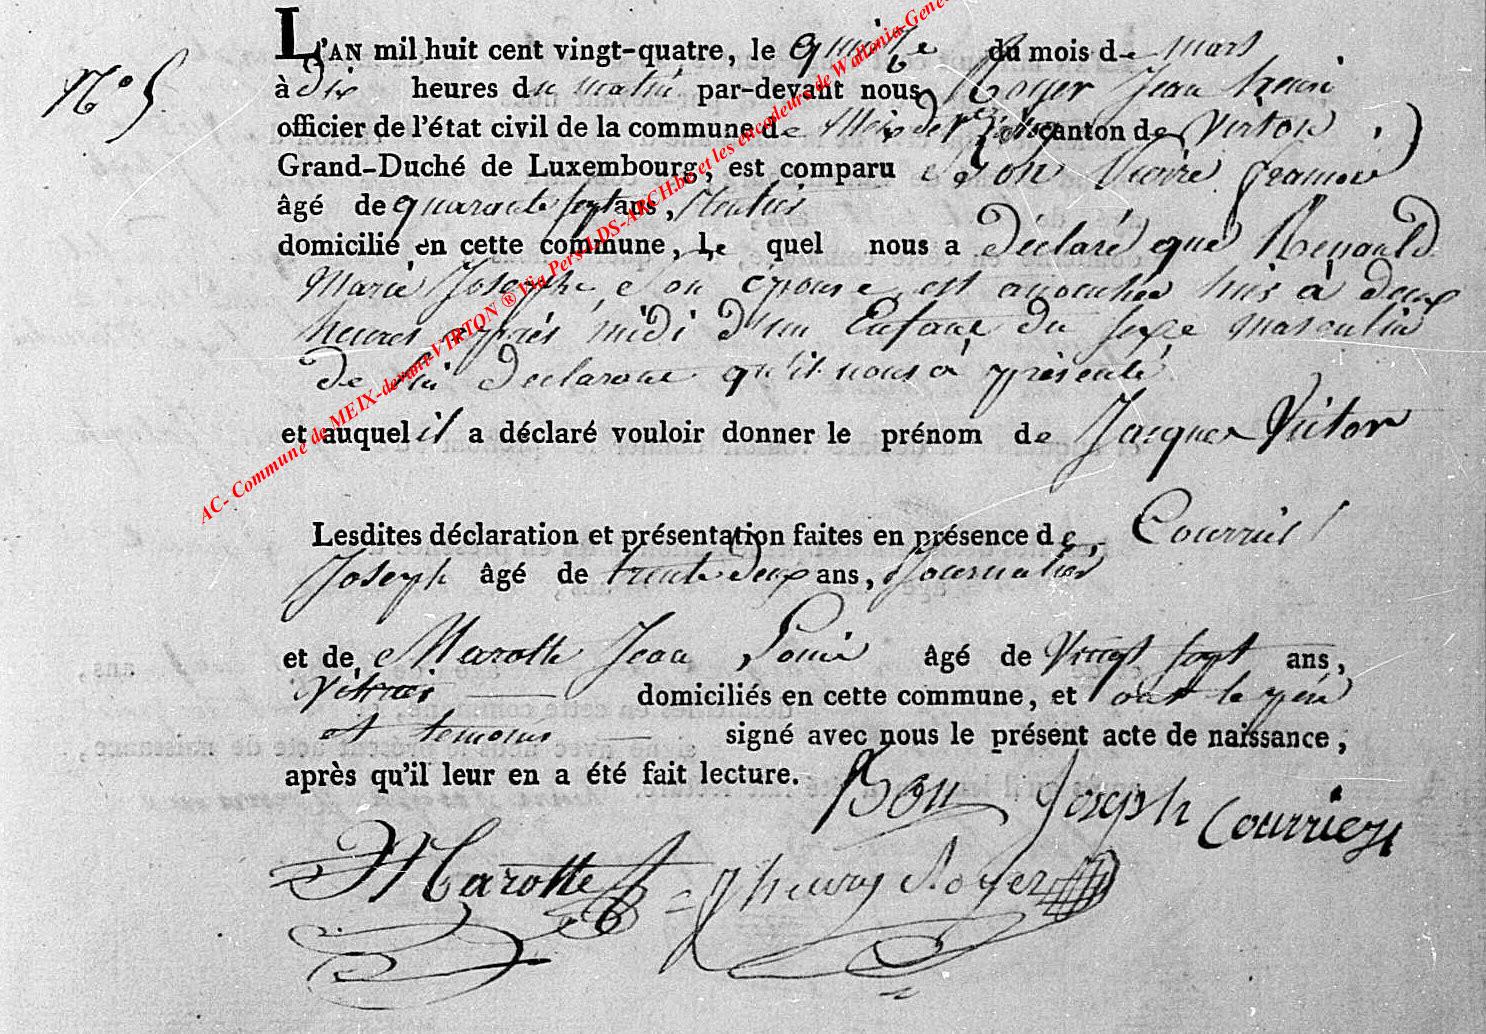 N.° 5
L'AN mil huit cent vingt-quatre, le quinze du mois de mars
à dix heures du matin par-devant nous Royer Jean henri
officier de l'état civil de la commune de Meix devt Virton canton de Virton,
Grand-Duché de Luxembourg, est comparu Bon Pierre francois
âgé de quarante sept ans,
domicilié en cette commune, le quel nous a déclaré que Renauld
Marie Josephe son épouse est accouchée hier à deux
heures après midi d'un Enfant du sexe masculin
de lui declarant qu'il nous a présenté
et auquel il a déclaré vouloir donner le prénom de Jacques Victor
Lesdites déclaration et présentation faites en présence de, Courrier
Joseph âgé de trente deux ans, Journalier
et de Marotte Jean Louis âgé de vingt sept ans,
domiciliés en cette commune, et ont le père
et temoins signé avec nous le présent acte de naissance,
après qu'il leur en a été fait lecture.
Bon Joseph Courrier
Marotte Jhenry Royer
AC- Commune de MEIX-devant-VIRTON ® Via Pers-LDS-ARCH.be et les encodeurs de Wallonia-Gene